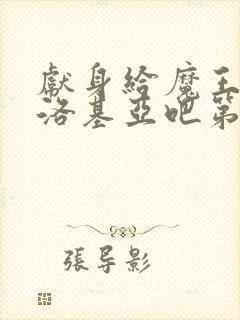 獻身給魔王
洛基亞吧第
張导影